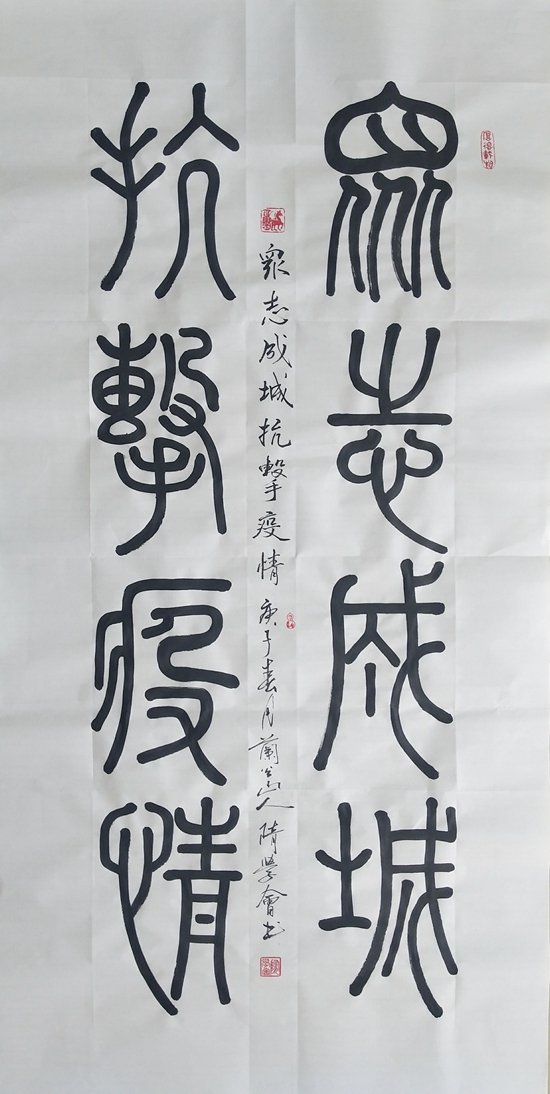 眾志成城
抗擊疫情
眾志成城抗擊疫情庚子春月蘭公山人隋學會书